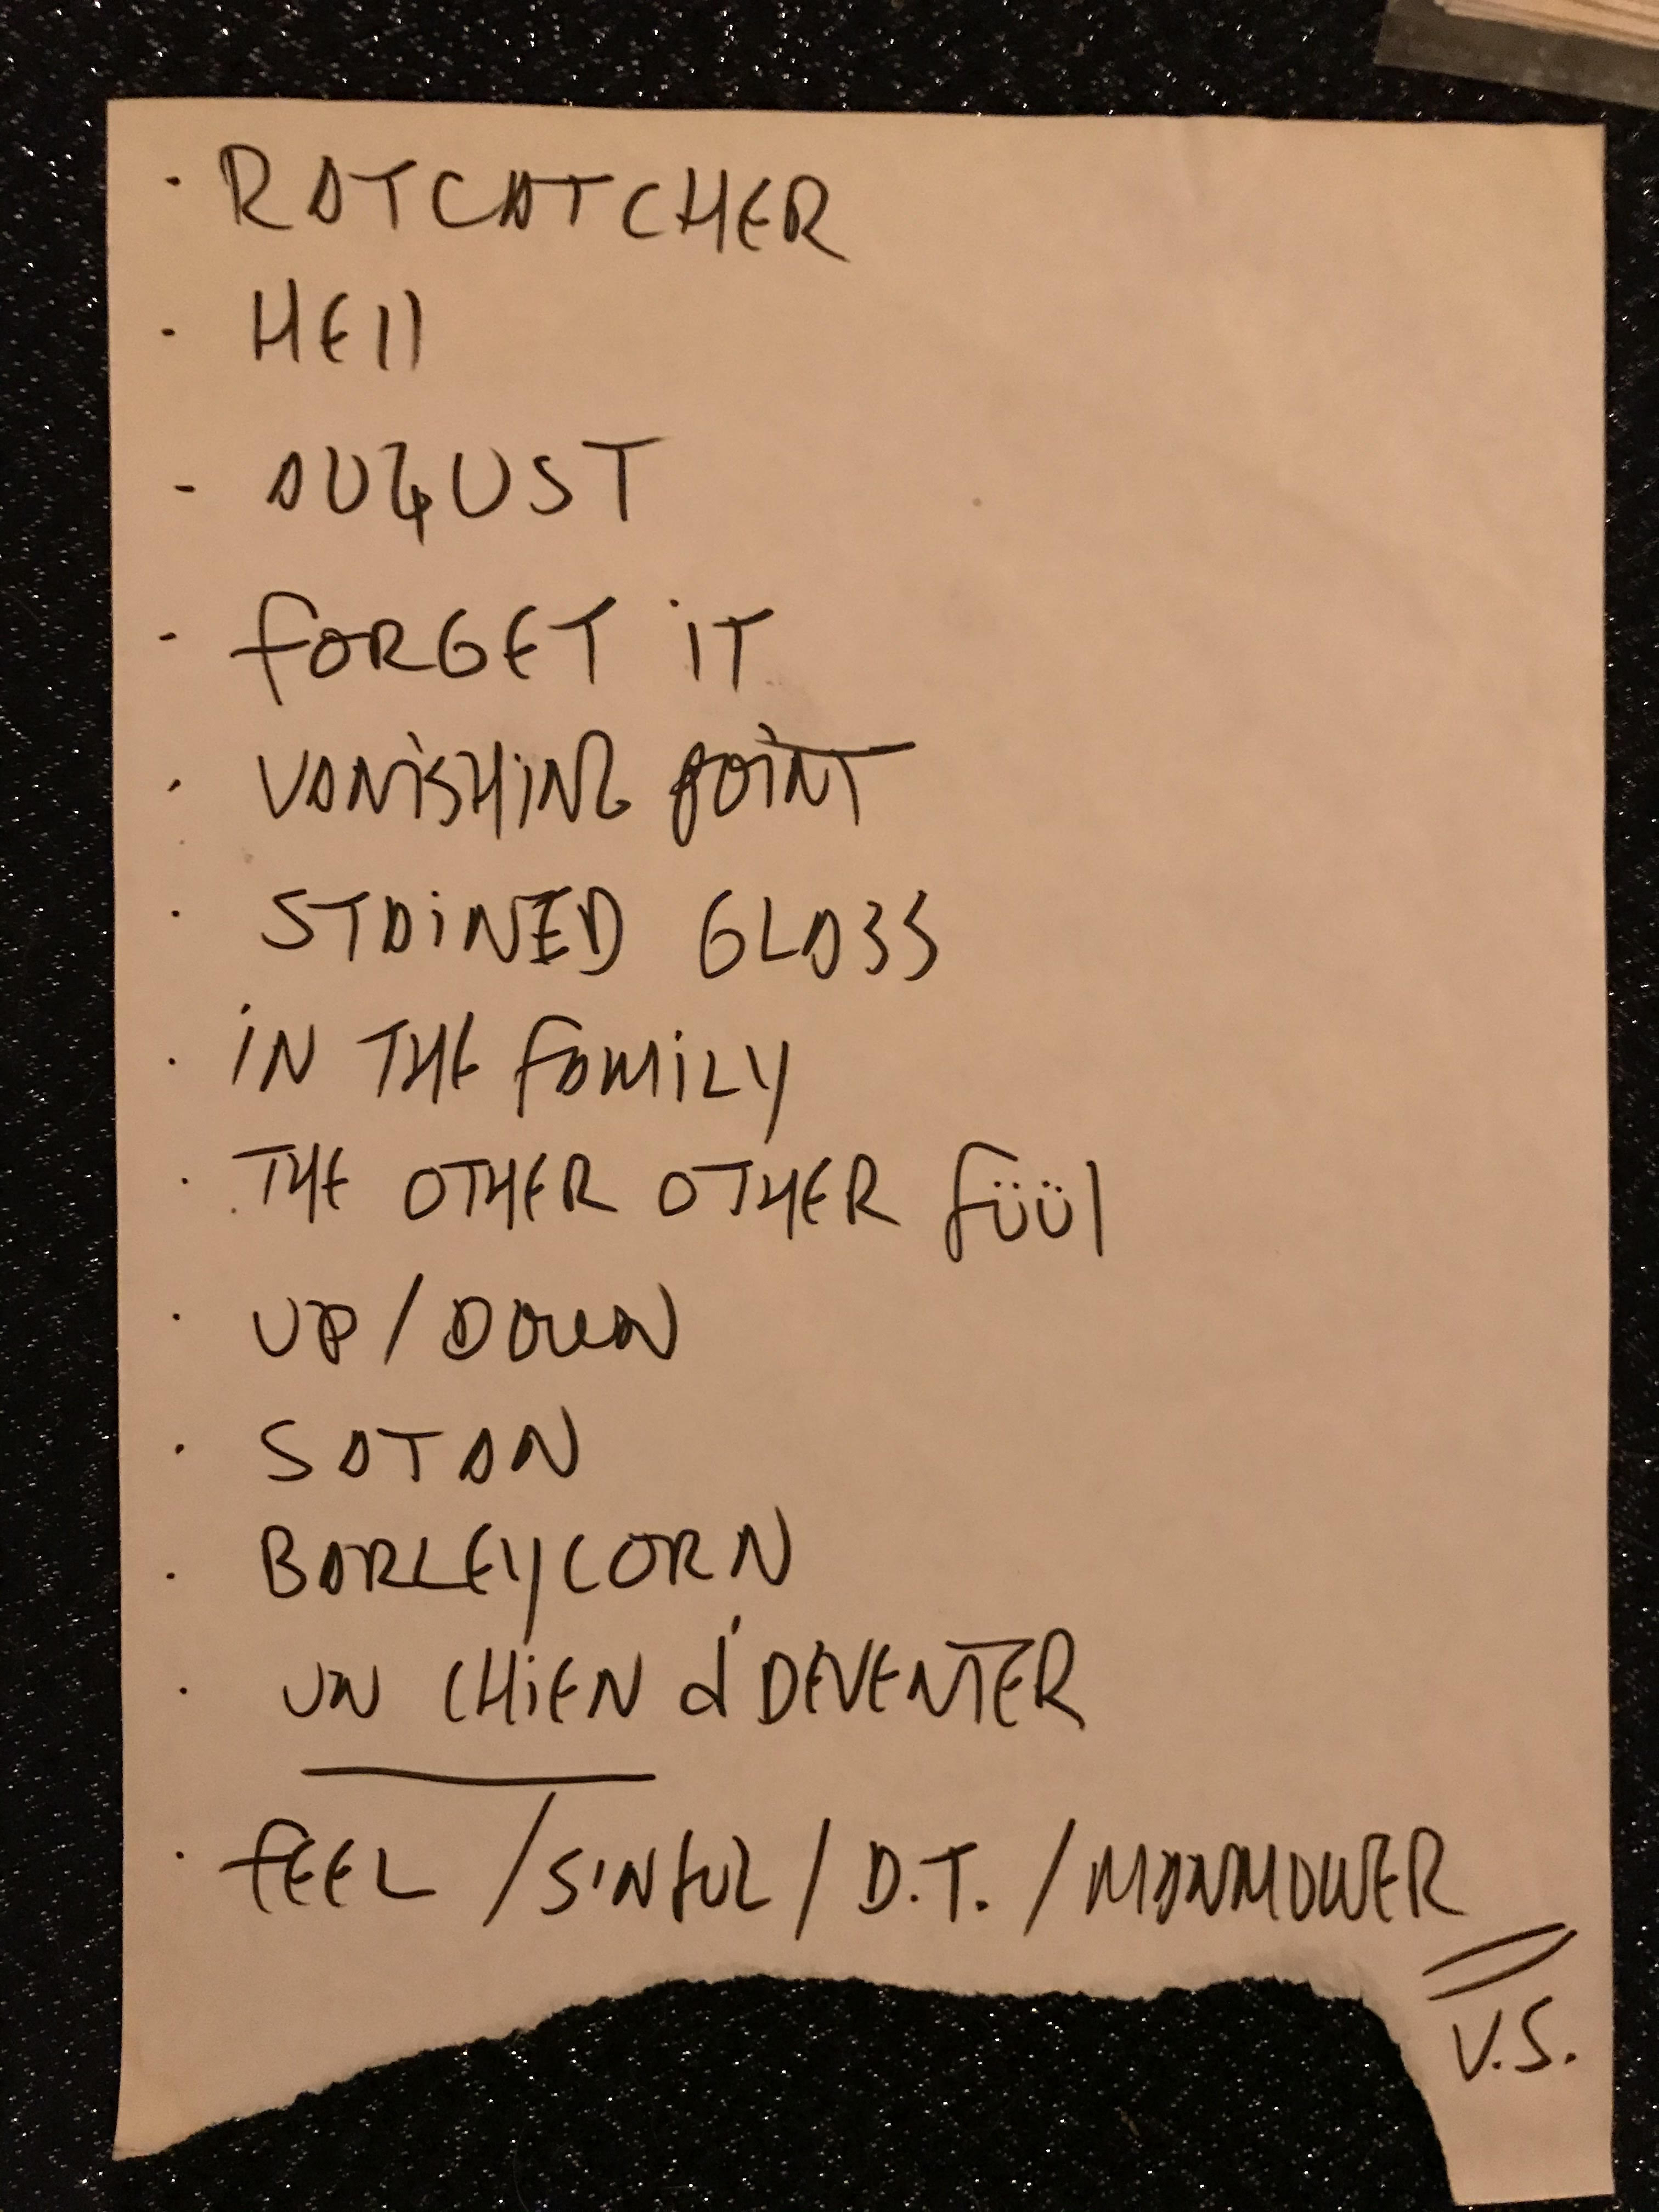 · RATCATCHER
· HEll
- AUGUST
- fORGET iT
· VANiSHiNG POiNT
· STAiNED GLASS
· iN THE fAMiLY
· THE OTHER OTHER füül
· UP / DOWN
· SATAN
· BARLEYCORN
· UN CHiEN d'DEVENTER
· fEEL / SiNfUL / D.T. / MANMOWER
V.S.